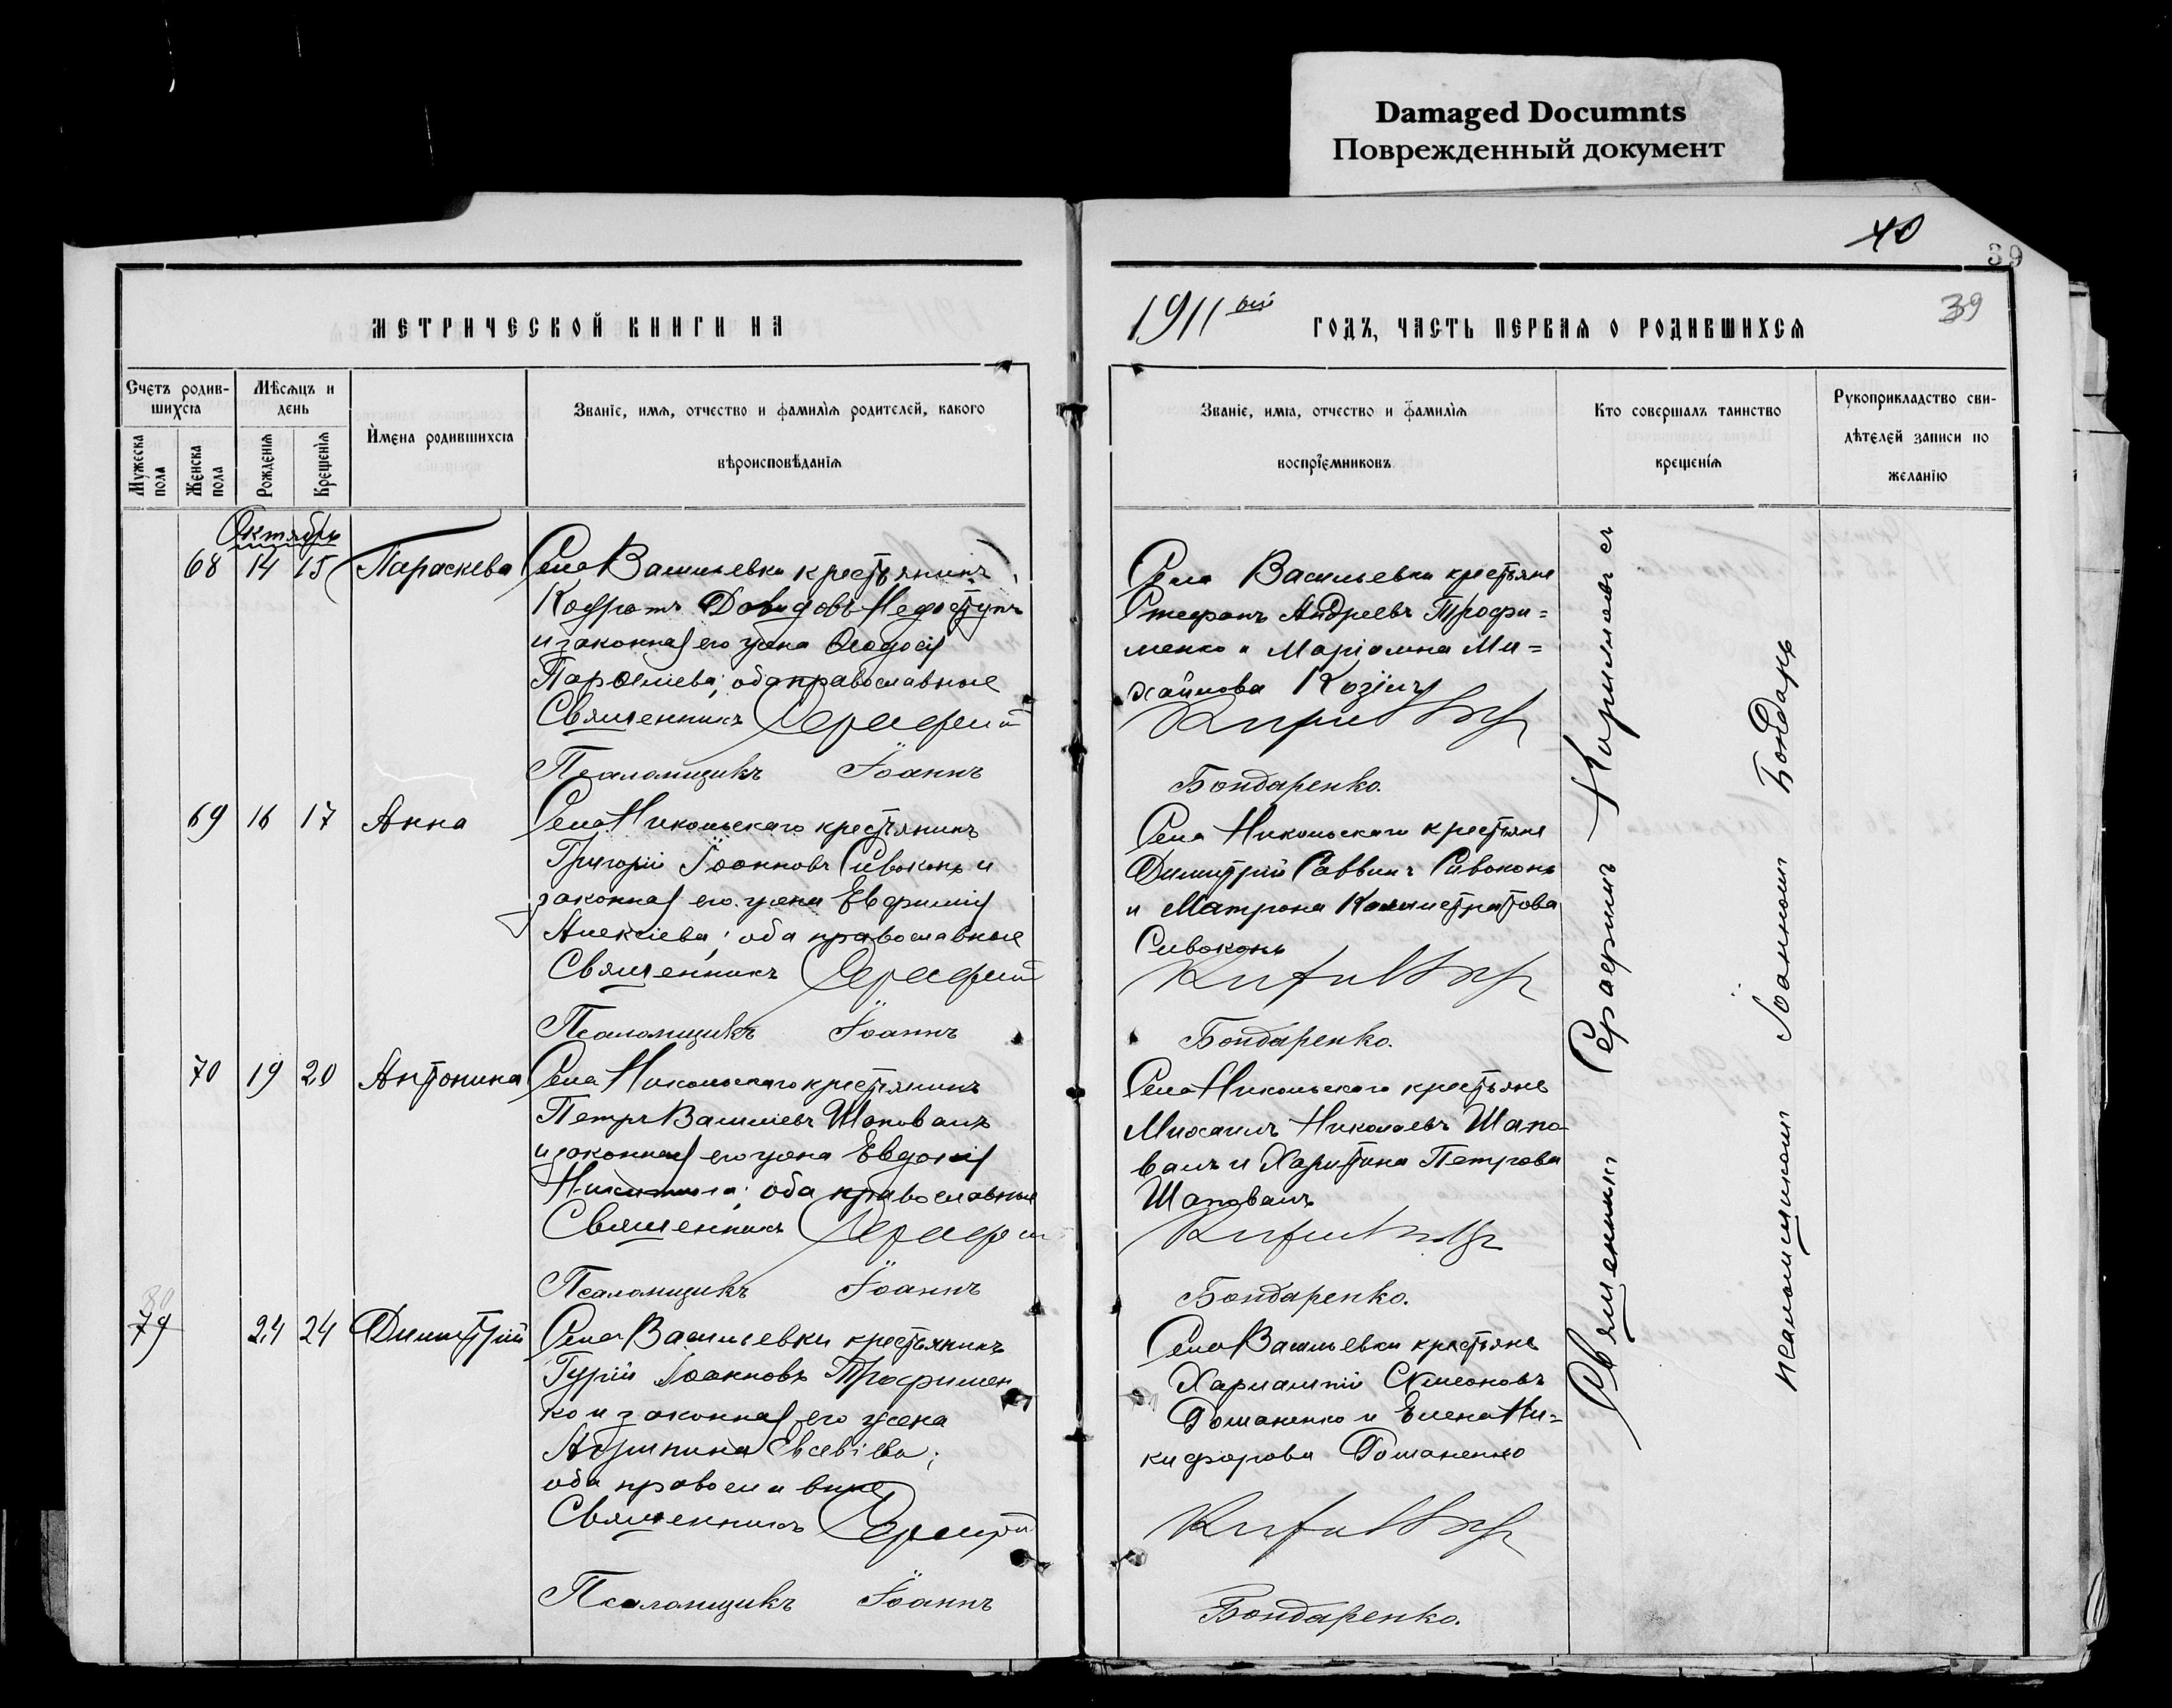 Damaged Documnts
Поврежденный документ
40
39
39
МЕТРИЧЕСКОЙ КНИГИ НА
1911 ый ГОДЪ, ЧАСТЬ ПЕРВАЯ О РОДИВШИХСЯ
Счетъ родив-
шихся
Мѣсяцъ и
день
Мужеска
пола
Женска
пола
Рожденія
Крещенія
Имена родившихся
Званіе, имя, отчество и фамилія родителей, какого
вѣроисповѣданія
Званіе, имя, отчество и фамилія
воспріемниковъ
Кто совершалъ таинство
крещенія
Рукоприкладство сви-
дѣтелей записи по
желанію
Октябрь
68 14 15 Параскева
Села Васильевки крестьянинъ
Кодратъ Давидовъ Недоступъ
и законная его жена Ѳеодосія
Парѳеніева; оба православные
Священникъ Серафим
Псаломщикъ Іоаннъ
Села Васильевки крестьяне
Стефанъ Андреевъ Трофи=
менко и Маріамна Ми=
хайлова
Бондаренко.
69 16 17 Анна
Села Никольскаго крестьянинъ
Григорій Іоанновъ Сивоконь и
законная его жена Евфимія
Алексіева; оба православные
Священникъ Серафим
Псаломщикъ Іоаннъ
Села Никольскаго крестьяне
Димитрій Саввинъ Сивоконь
и Матрона Каллистратова
Сивоконь
Бондаренко.
70 19 20 Антонина
Села Никольскаго крестьянинъ
Петръ Васильевъ Шаповалъ
и законная его жена Евдокія
оба православные
Священникъ Серафим
Псаломщикъ Іоаннъ
Села Никольскаго крестьяне
Михаилъ Николаевъ Шапо-
валъ и Харитина Петрова
Шаповалъ
Бондаренко.
80
79 24 24 Димитрій
Села Васильевки крестьянинъ
Гурій Іоанновъ Трофимен
ко и законная его жена
Агрипина Евсевіева;
оба православные
Священникъ Серафим
Псаломщикъ Іоаннъ
Села Васильевки крестьяне
Харлампій Симеоновъ
Романенко и Елена Ни=
кифорова Романенко
Бондаренко.
Священникъ Серафимъ съ
псаломщикомъ Іоанномъ Бондарь